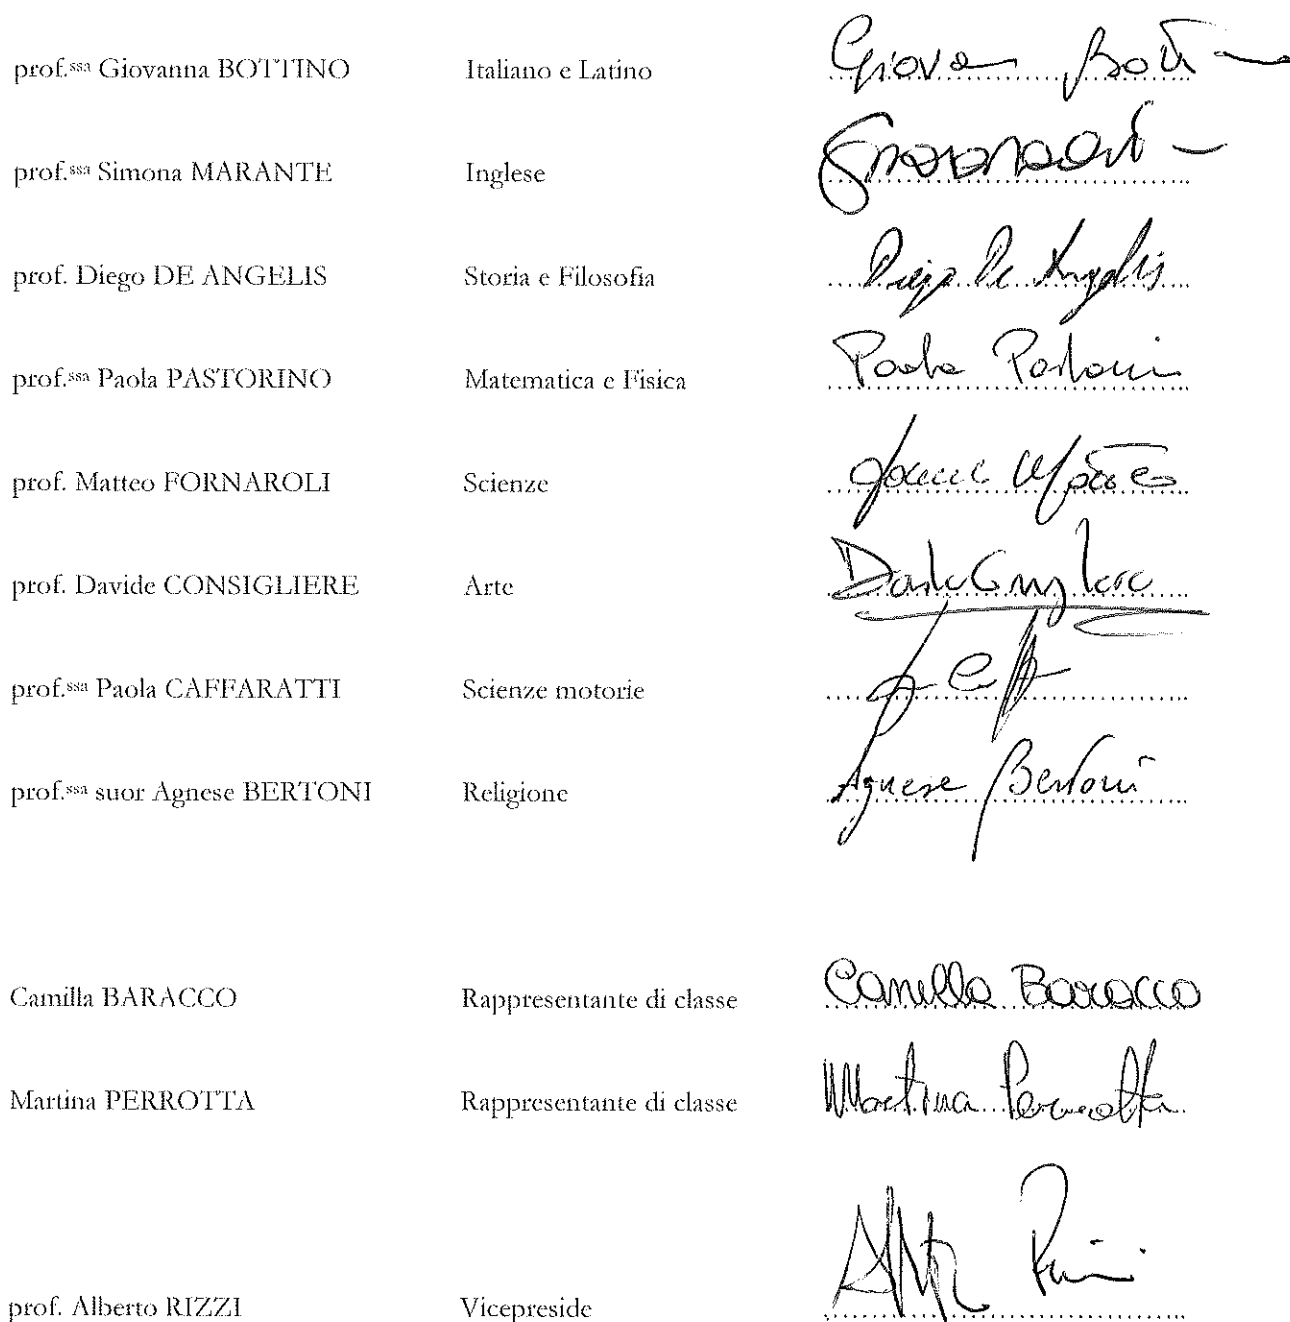 prof.ssa Giovanna BOTTINO Italiano e Latino Giovan Bott
prof.ssa Simona MARANTE Inglese
prof. Diego DE ANGELIS Storia e Filosofia Diego De Angelis
prof.ssa Paola PASTORINO Matematica e Fisica Paola Pastorin
prof. Matteo FORNAROLI Scienze
prof. Davide CONSIGLIERE Arte
prof.ssa Paola CAFFARATTI Scienze motorie
prof.ssa suor Agnese BERTONI Religione Agnese Bertoni
Camilla BARACCO Rappresentante di classe Camilla Baracco
Martina PERROTTA Rappresentante di classe Martina Perrotta
prof. Alberto RIZZI Vicepreside